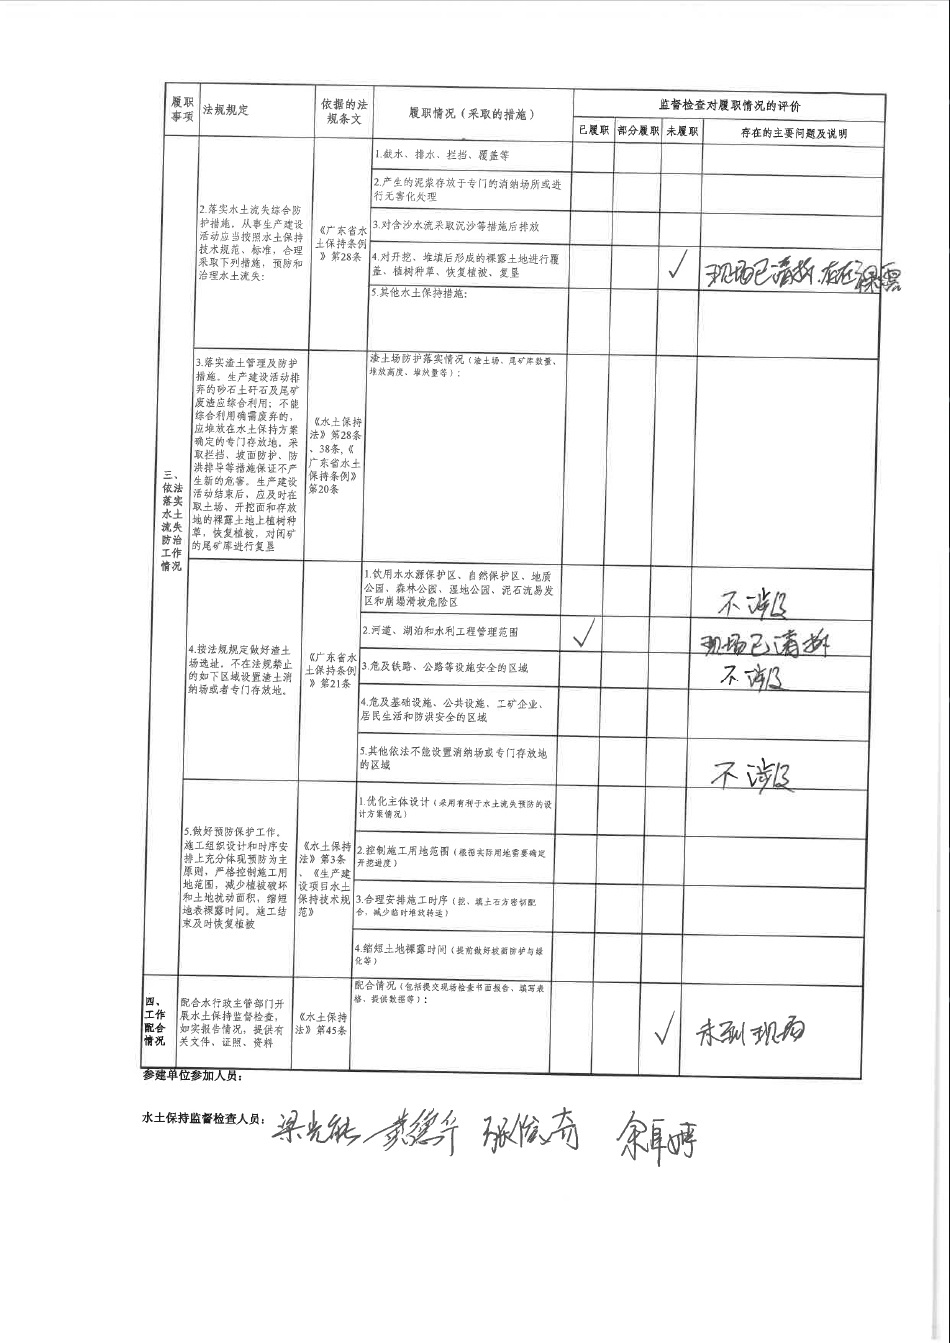 履职
事项
法规规定
依据的法
规条文
履职情况（采取的措施）
监督检查对履职情况的评价
已履职
部分履职
未履职
存在的主要问题及说明
三、
依法
落实
水土
流失
防治
工作
情况
2.落实水土流失综合防
护措施。从事生产建设
活动应当按照水土保持
技术规范、标准，合理
采取下列措施，预防和
治理水土流失：
《广东省水
土保持条例
》第28条
1.截水、排水、拦挡、覆盖等
2.产生的泥浆存放于专门的消纳场所或进
行无害化处理
3.对含沙水流采取沉沙等措施后排放
4.对开挖、堆填后形成的裸露土地进行覆
盖、植树种草、恢复植被、复垦
✓
现场已清拆，存在裸露
5.其他水土保持措施：
3.落实渣土管理及防护
措施。生产建设活动排
弃的砂石土矸石及尾矿
废渣应综合利用；不能
综合利用确需废弃的，
应堆放在水土保持方案
确定的专门存放地。采
取拦挡、坡面防护、防
洪排导等措施保证不产
生新的危害。生产建设
活动结束后，应及时在
取土场、开挖面和存放
地的裸露土地上植树种
草，恢复植被，对闭矿
的尾矿库进行复垦
《水土保持
法》第28条
、38条,《
广东省水土
保持条例》
第20条
渣土场防护落实情况（渣土场、尾矿库数量、
堆放高度、堆放量等）：
4.按法规规定做好渣土
场选址。不在法规禁止
的如下区域设置渣土消
纳场或者专门存放地。
《广东省水
土保持条例
》第21条
1.饮用水水源保护区、自然保护区、地质
公园、森林公园、湿地公园、泥石流易发
区和崩塌滑坡危险区
不涉及
2.河道、湖泊和水利工程管理范围
✓
现场已清拆
3.危及铁路、公路等设施安全的区域
不涉及
4.危及基础设施、公共设施、工矿企业、
居民生活和防洪安全的区域
5.其他依法不能设置消纳场或专门存放地
的区域
不涉及
5.做好预防保护工作。
施工组织设计和时序安
排上充分体现预防为主
原则，严格控制施工用
地范围，减少植被破坏
和土地扰动面积，缩短
地表裸露时间。施工结
束及时恢复植被
《水土保持
法》第3条
、《生产建
设项目水土
保持技术规
范》
1.优化主体设计（采用有利于水土流失预防的设
计方案情况）
2.控制施工用地范围（根据实际用地需要确定
开挖进度）
3.合理安排施工时序（挖、填土石方密切配
合，减少临时堆放转运）
4.缩短土地裸露时间（提前做好坡面防护与绿
化等）
四、
工作
配合
情况
配合水行政主管部门开
展水土保持监督检查，
如实报告情况，提供有
关文件、证照、资料
《水土保持
法》第45条
配合情况（包括提交现场检查书面报告、填写表
格、提供数据等）：
✓
未到现场
参建单位参加人员：
水土保持监督检查人员：梁光能